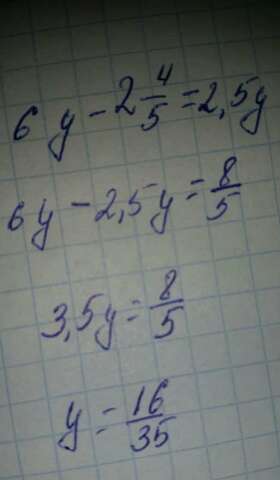 6y - 2 4/5 = 2,5y
6y - 2,5y = 8/5
3,5y = 8/5
y = 16/35